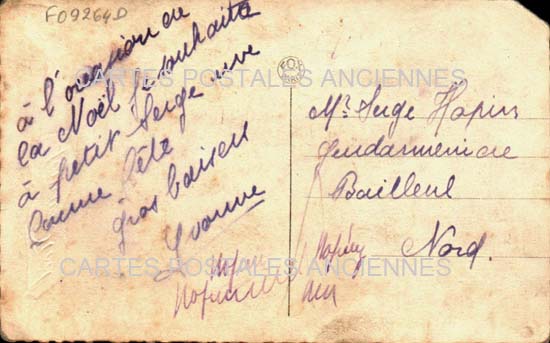 F09264D
à l'occasion de
la Noël je souhaite
à petit Serge une
bonne fête
gros baisers
Yvonne
Mr Serge Hapins
Gendarmerie de
Bailleul
Nord.
CARTES POSTALES ANCIENNES
CARTES POSTALES ANCIENNES